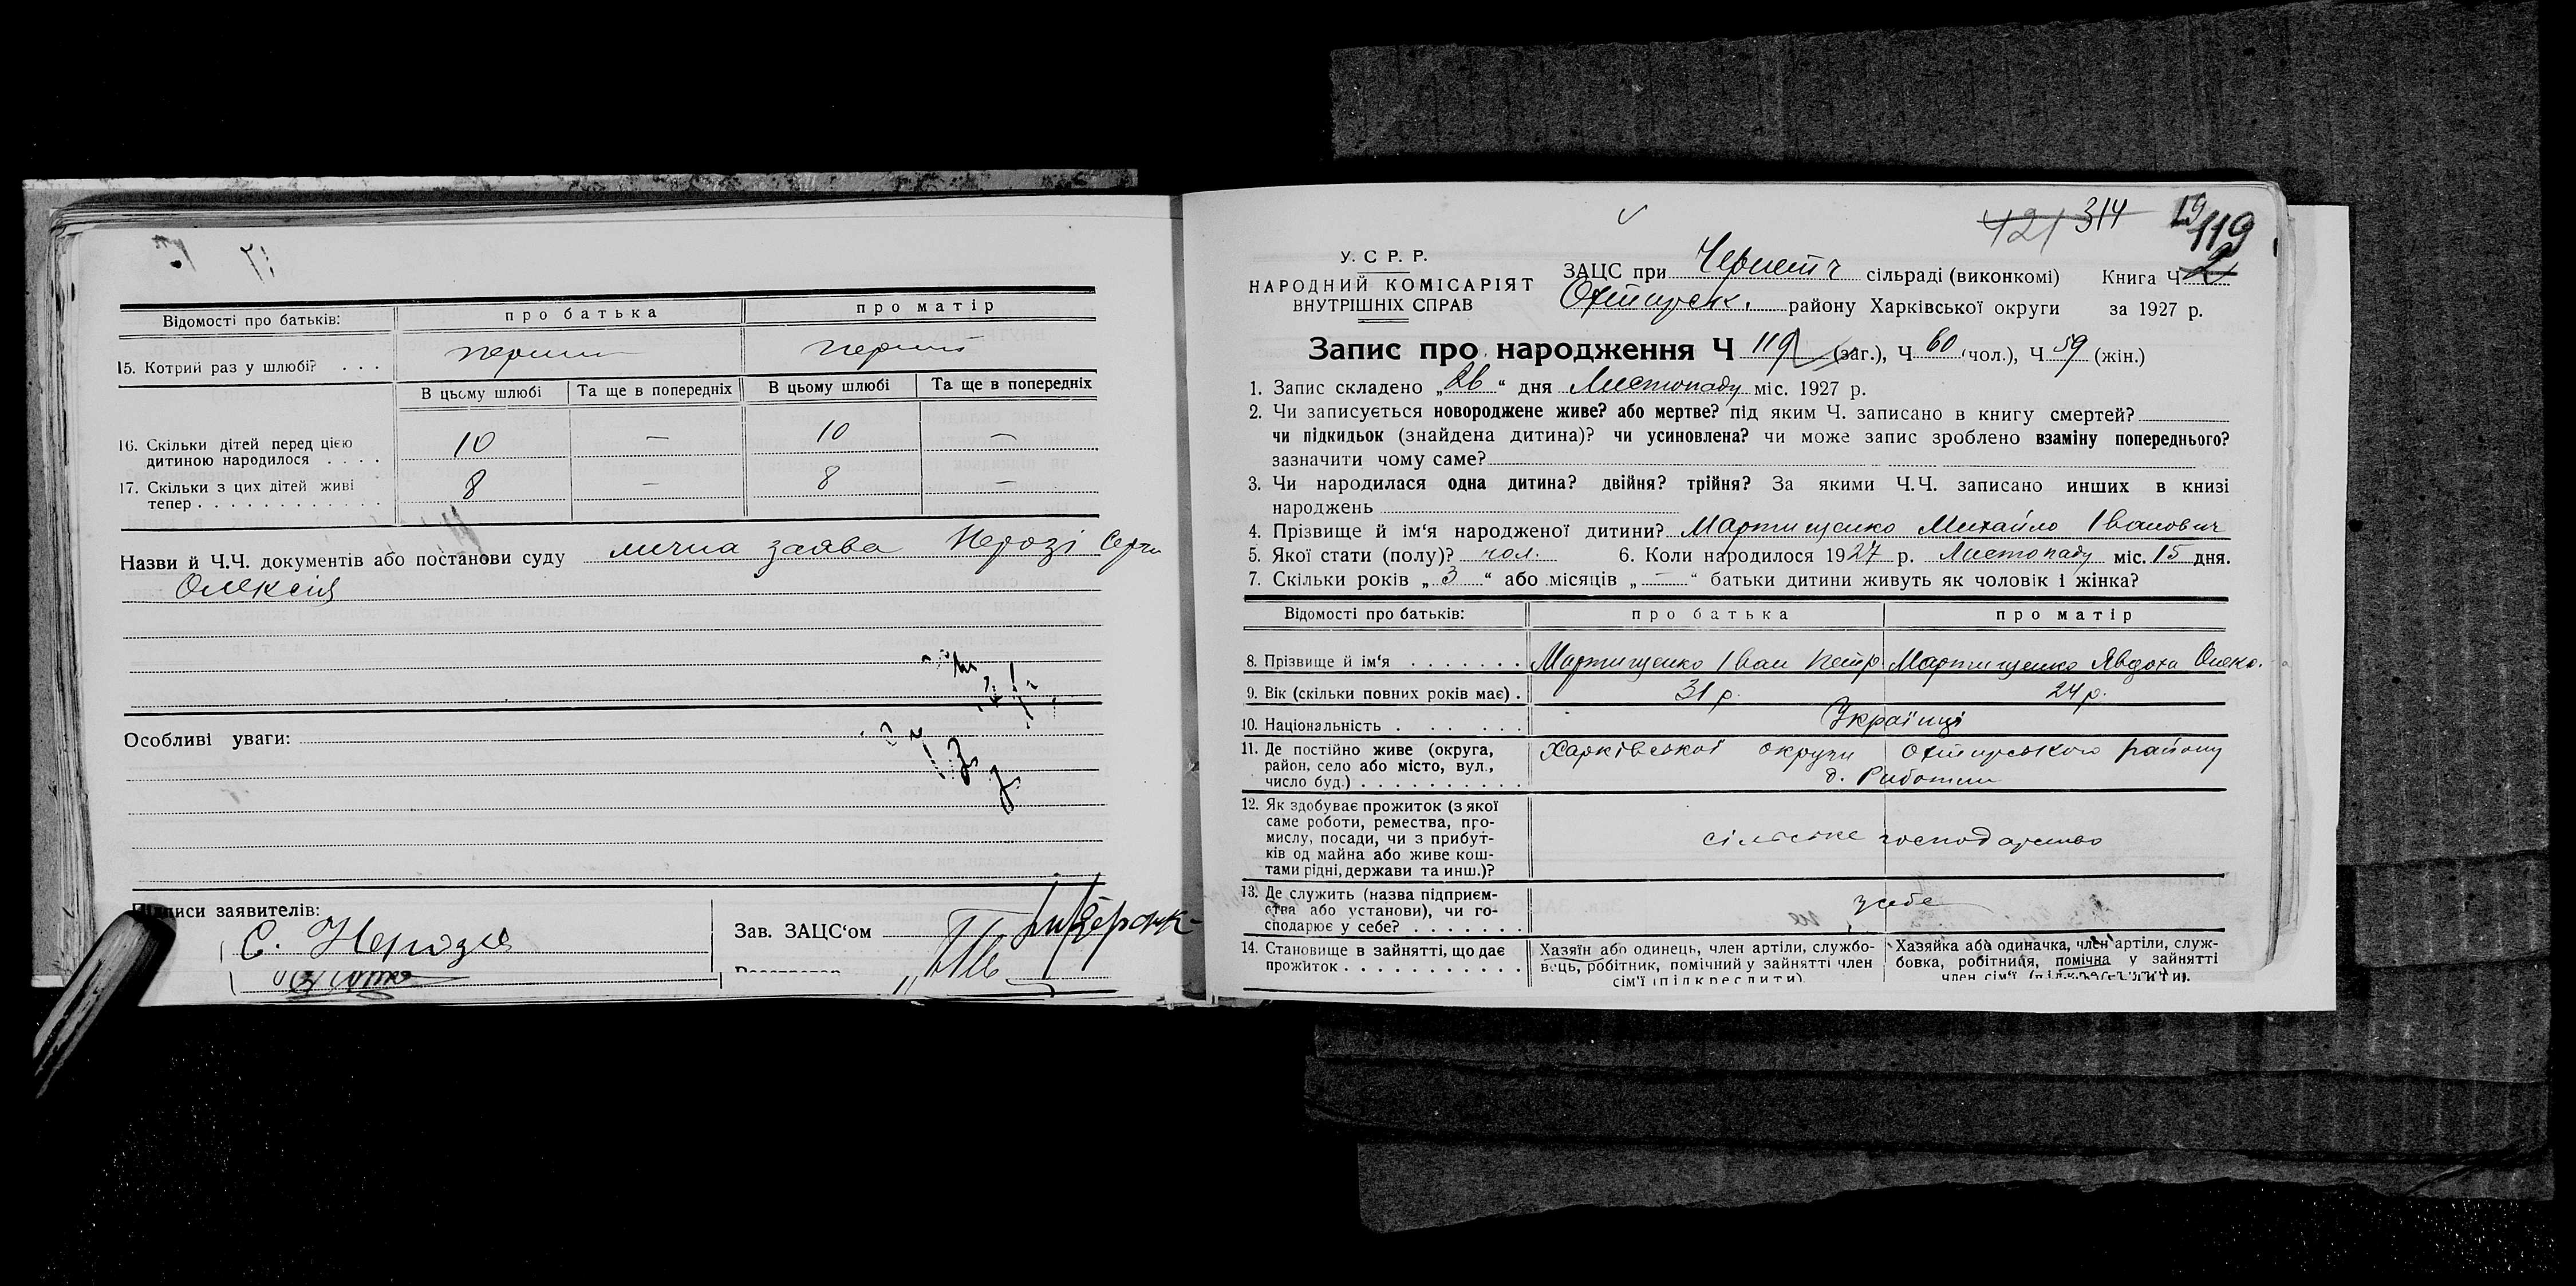 Відомості про батьків: про батька про матір
15. Котрий раз у шлюбі? . . . перший перший
В цьому шлюбі Та ще в попередніх В цьому шлюбі Та ще в попередніх
16. Скільки дітей перед цією
дитиною народилося . . . . 10 — 10 —
17. Скільки з цих дітей живі
тепер . . . . . . . . . . . . 8 — 8 —
Назви й Ч.Ч. документів або постанови суду лична заява Нерозі
Олексія
Особливі уваги:
Підписи заявителів:
С. Нероза
Зав. ЗАЦС'ом
121 314 19 119
У. С Р. Р.
НАРОДНИЙ КОМІСАРІЯТ
ВНУТРІШНІХ СПРАВ
ЗАЦС при Чернетч сільраді (виконкомі) Книга Ч 2
Охтирськ. району Харківської округи за 1927 р.
Запис про народження Ч 119 (заг.), Ч 60 (чол.), Ч 59 (жін.)
1. Запис складено „26“ дня Листопаду міс. 1927 р.
2. Чи записується новороджене живе? або мертве? під яким Ч. записано в книгу смертей?
чи підкидьок (знайдена дитина)? чи усиновлена? чи може запис зроблено взаміну попереднього?
зазначити чому саме?
3. Чи народилася одна дитина? двійня? трійня? За якими Ч.Ч. записано инших в книзі
народжень
4. Прізвище й ім'я народженої дитини? Мартищенко Михайло Іванович
5. Якої стати (полу)? чол. 6. Коли народилося 1927 р. Листопаду міс. 15 дня.
7. Скільки років „3“ або місяців „—“ батьки дитини живуть як чоловік і жінка?
Відомості про батьків: про батька про матір
8. Прізвище й ім'я . . . . . . . Мартищенко Іван Петр. Мартищенко Явдоха Олекс.
9. Вік (скільки повних років має) . 31 р. 24 р.
10. Національність . . . . . . . Українці
11. Де постійно живе (округа,
район, село або місто, вул.,
число буд.) . . . . . . . . . . Харківської округи Охтирського району
12. Як здобуває прожиток (з якої
саме роботи, ремества, про-
мислу, посади, чи з прибут-
ків од майна або живе кош-
тами рідні, держави та инш.)? сільське господарство
13. Де служить (назва підприєм-
ства або установи), чи го-
сподарює у себе? . . . . . . .
14. Становище в зайнятті, що дає
прожиток . . . . . . . . . . .
Хазяїн або одинець, член артілі, службо-
вець, робітник, помічний у зайнятті член
сім'ї (підкреслити)
Хазяйка або одиначка, член артілі, служ-
бовка, робітниця, помічна у зайнятті
член сім'ї (підкреслити).